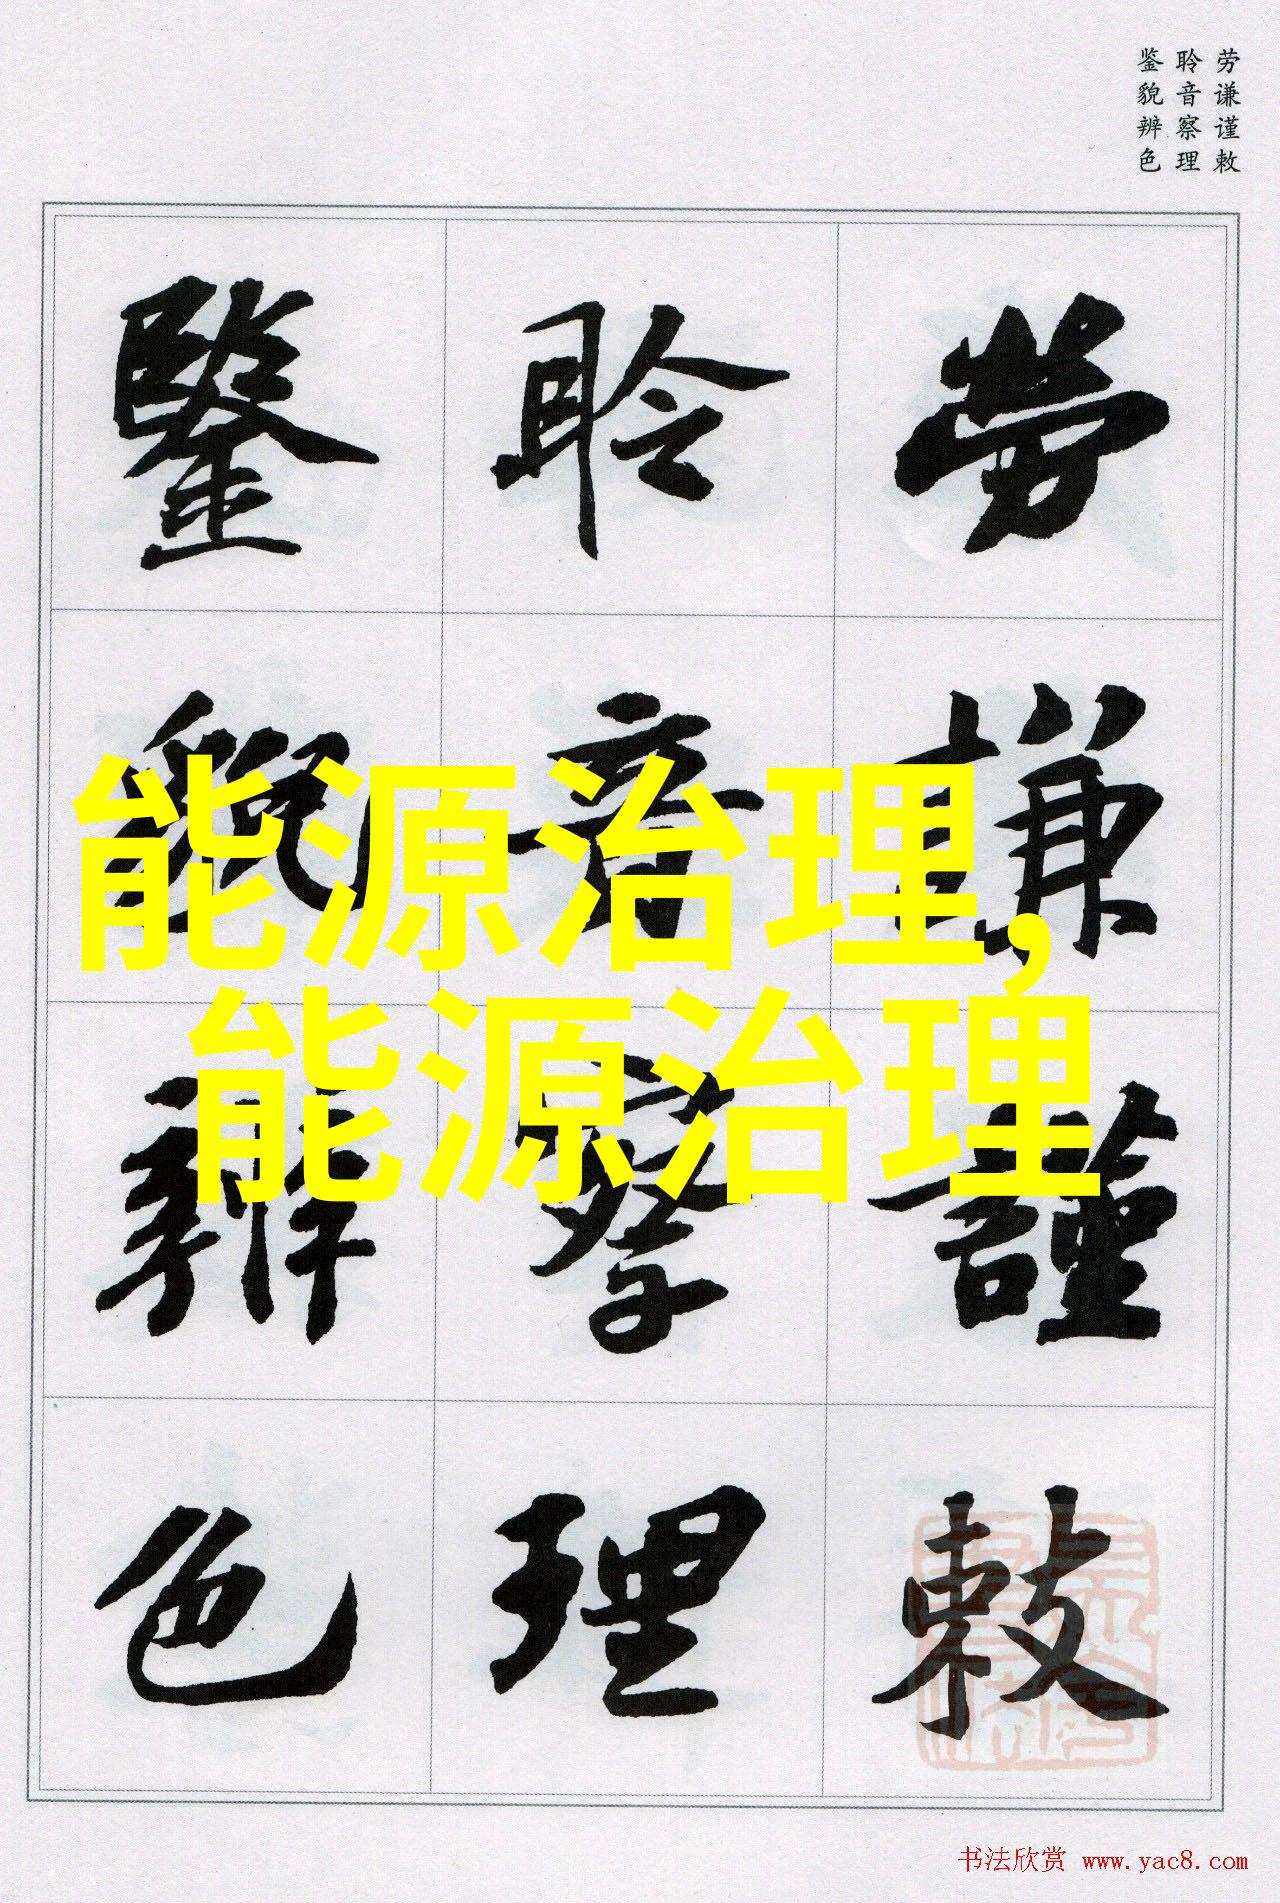 劳谦谨敕
聆音察理
鉴貌辨色
劳謙謹敕
聆音察理
鑒貌辨色
能源治理,
能源治理
书法欣赏 www.yac8.com